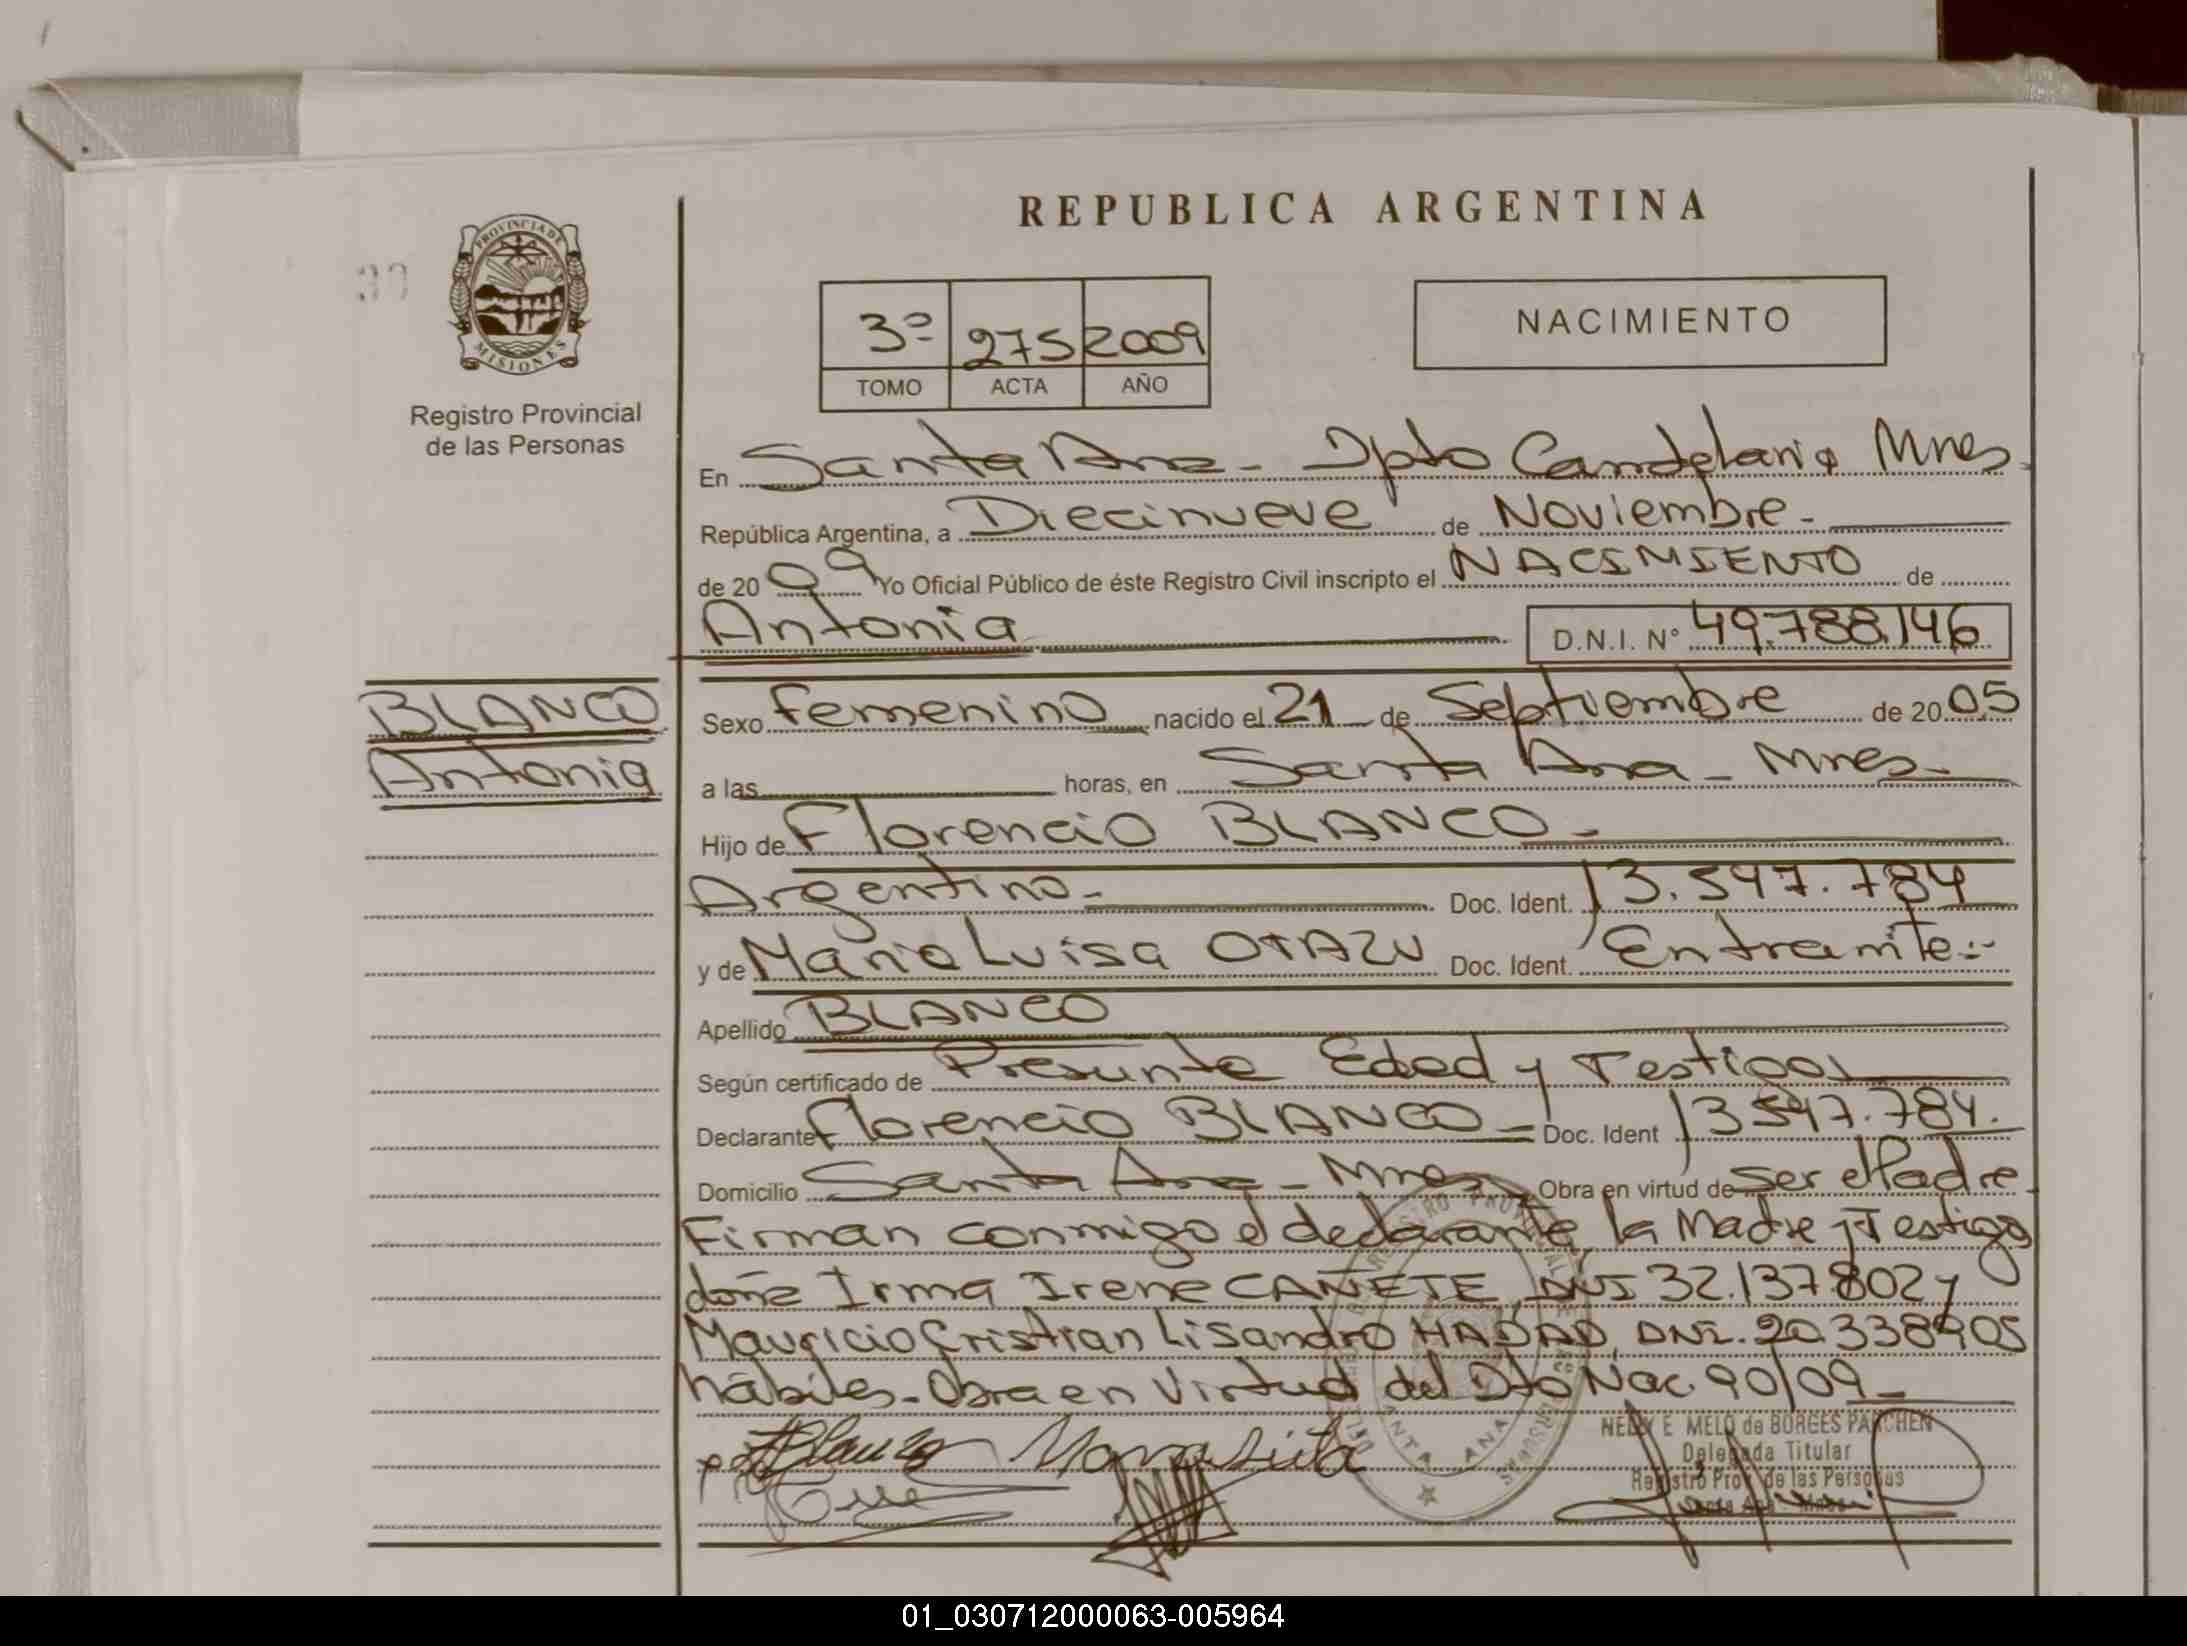 REPUBLICA ARGENTINA
PROVINCIA DE
MISIONES
Registro Provincial
de las Personas
3º 275 2009
TOMO ACTA AÑO
NACIMIENTO
En Santa Ana - Dpto Candelaria Mnes.
República Argentina, a Diecinueve de Noviembre -
de 20 09 Yo Oficial Público de éste Registro Civil inscripto el NACIMIENTO de
Antonia D.N.I. Nº 49.788.146
BLANCO
Antonia
Sexo Femenino nacido el 21 de Septiembre de 20 05
a las horas, en Santa Ana - Mnes -
Hijo de Florencio BLANCO -
Argentino - Doc. Ident. 13.547.784
y de Maria Luisa OTAZU Doc. Ident. Entramite.-
Apellido BLANCO
Según certificado de Presunta Edad y Testigos
Declarante Florencio BLANCO - Doc. Ident 13547.784.
Domicilio Santa Ana - Mnes Obra en virtud de ser el Padre
Firman conmigo el declarante, la Madre y Testigos
doña Irma Irene CAÑETE, DNI 32.137.802 y
Mauricio Cristian Lisandro HADAD, DNI. 20.338.905
hábiles - Obra en Virtud del Dto Nac. 90/09 -
SANTA ANA
NELLY E. MELO de BORGES PARCHEN
Delegada Titular
Registro Prov. de las Personas
Santa Ana - Mnes
01_030712000063-005964